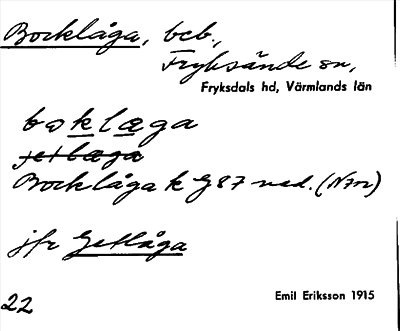 Bocklåga, beb.,
Fryksände sn,
Fryksdals hd, Värmlands län
bɔklæga
jetlæga
Bocklåga k G87 ned. (N702)
jfr Getlåga
22
Emil Eriksson 1915